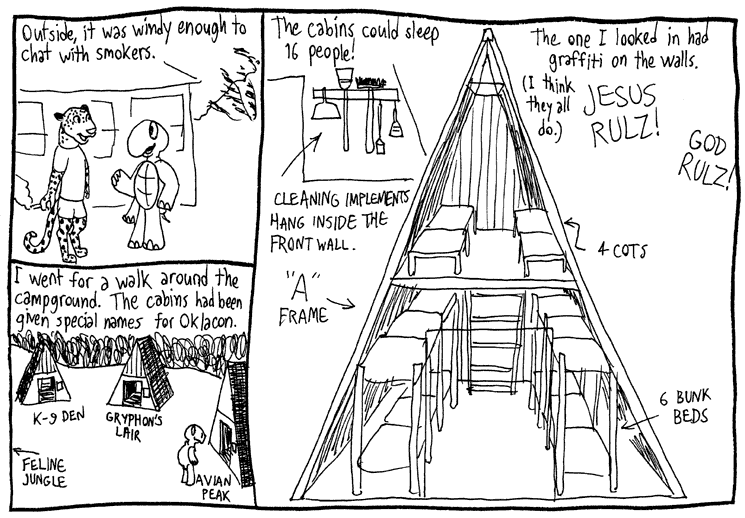 Outside, it was windy enough to
chat with smokers.
I went for a walk around the
campground. The cabins had been
given special names for Oklacon.
K-9 DEN
GRYPHON'S
LAIR
FELINE
JUNGLE
AVIAN
PEAK
The cabins could sleep
16 people!
CLEANING IMPLEMENTS
HANG INSIDE THE
FRONT WALL.
"A"
FRAME
The one I looked in had
graffiti on the walls.
(I think
they all
do.)
JESUS
RULZ!
GOD
RULZ!
4 COTS
6 BUNK
BEDS